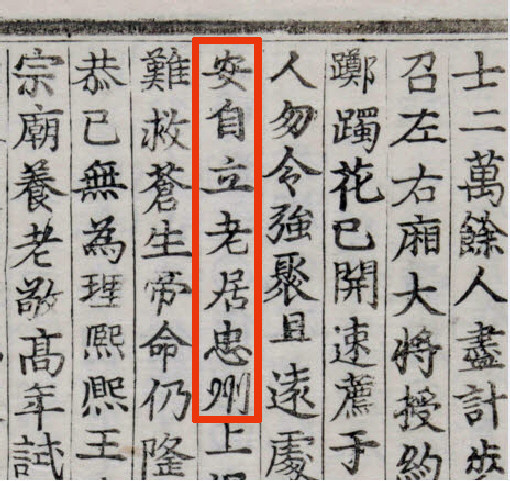 士二萬餘人盡計
召左右廂大將授約
躑躅花已開速薦于
人勿令強聚且遠處
安自立老居忠州上
難救蒼生帝命仍隆
恭已無為理熙熙王
宗廟養老敬高年試